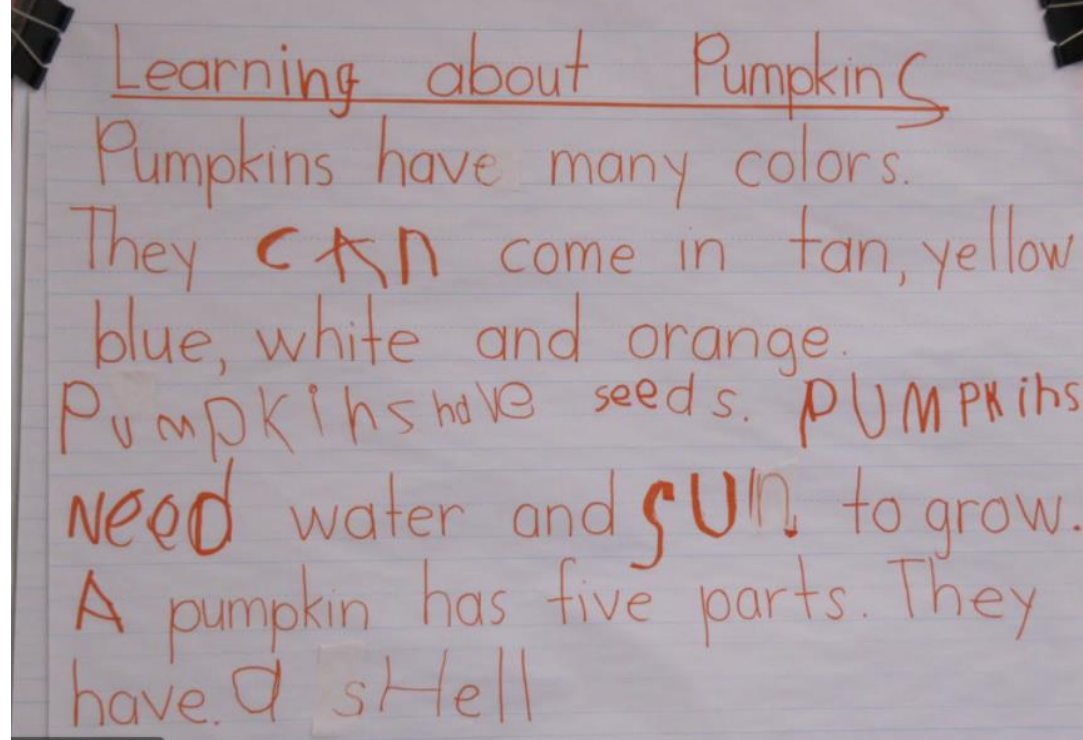 Learning about Pumpkins
Pumpkins have many colors.
They cAn come in tan, yellow
blue, white and orange.
PumpKihs have seeds. PUMPKihs
Need water and sUn. to grow.
A pumpkin has five parts. They
have. a sHell